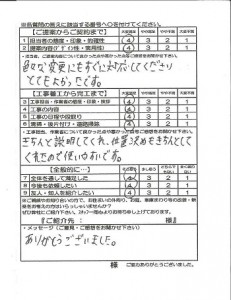 ※各質問の答えに該当する番号へ○を付けてください。
【ご提案からご契約まで】 大変満足 やや満足 やや不満 大変不満
1 担当者の態度・印象・約束時間 4 3 2 1
2 提案内容(デザイン性・実用性) 4 3 2 1
色々な変更にもすぐに対応してくださり
とてもよかったです。
【工事着工から完了まで】 大変満足 やや満足 やや不満 大変不満
3 工事担当、作業者の態度・印象・挨拶 4 3 2 1
4 工事の内容 4 3 2 1
5 工事の日程や段取り 4 3 2 1
6 清掃・後片付け・道路掃除 4 3 2 1
きちんと説明してくれ、位置決めもきちんとして
くれたので使いやすいです。
【全般的に…】
7 全体を通して満足した 4 3 2 1
8 今後も依頼したい 4 3 2 1
9 友人・知人を紹介したい 4 3 2 1
『ご紹介先: 様』
・メッセージ(ご意見、ご感想をお聞かせ下さい)
ありがとうございました。
様 ご協力ありがとうございました。